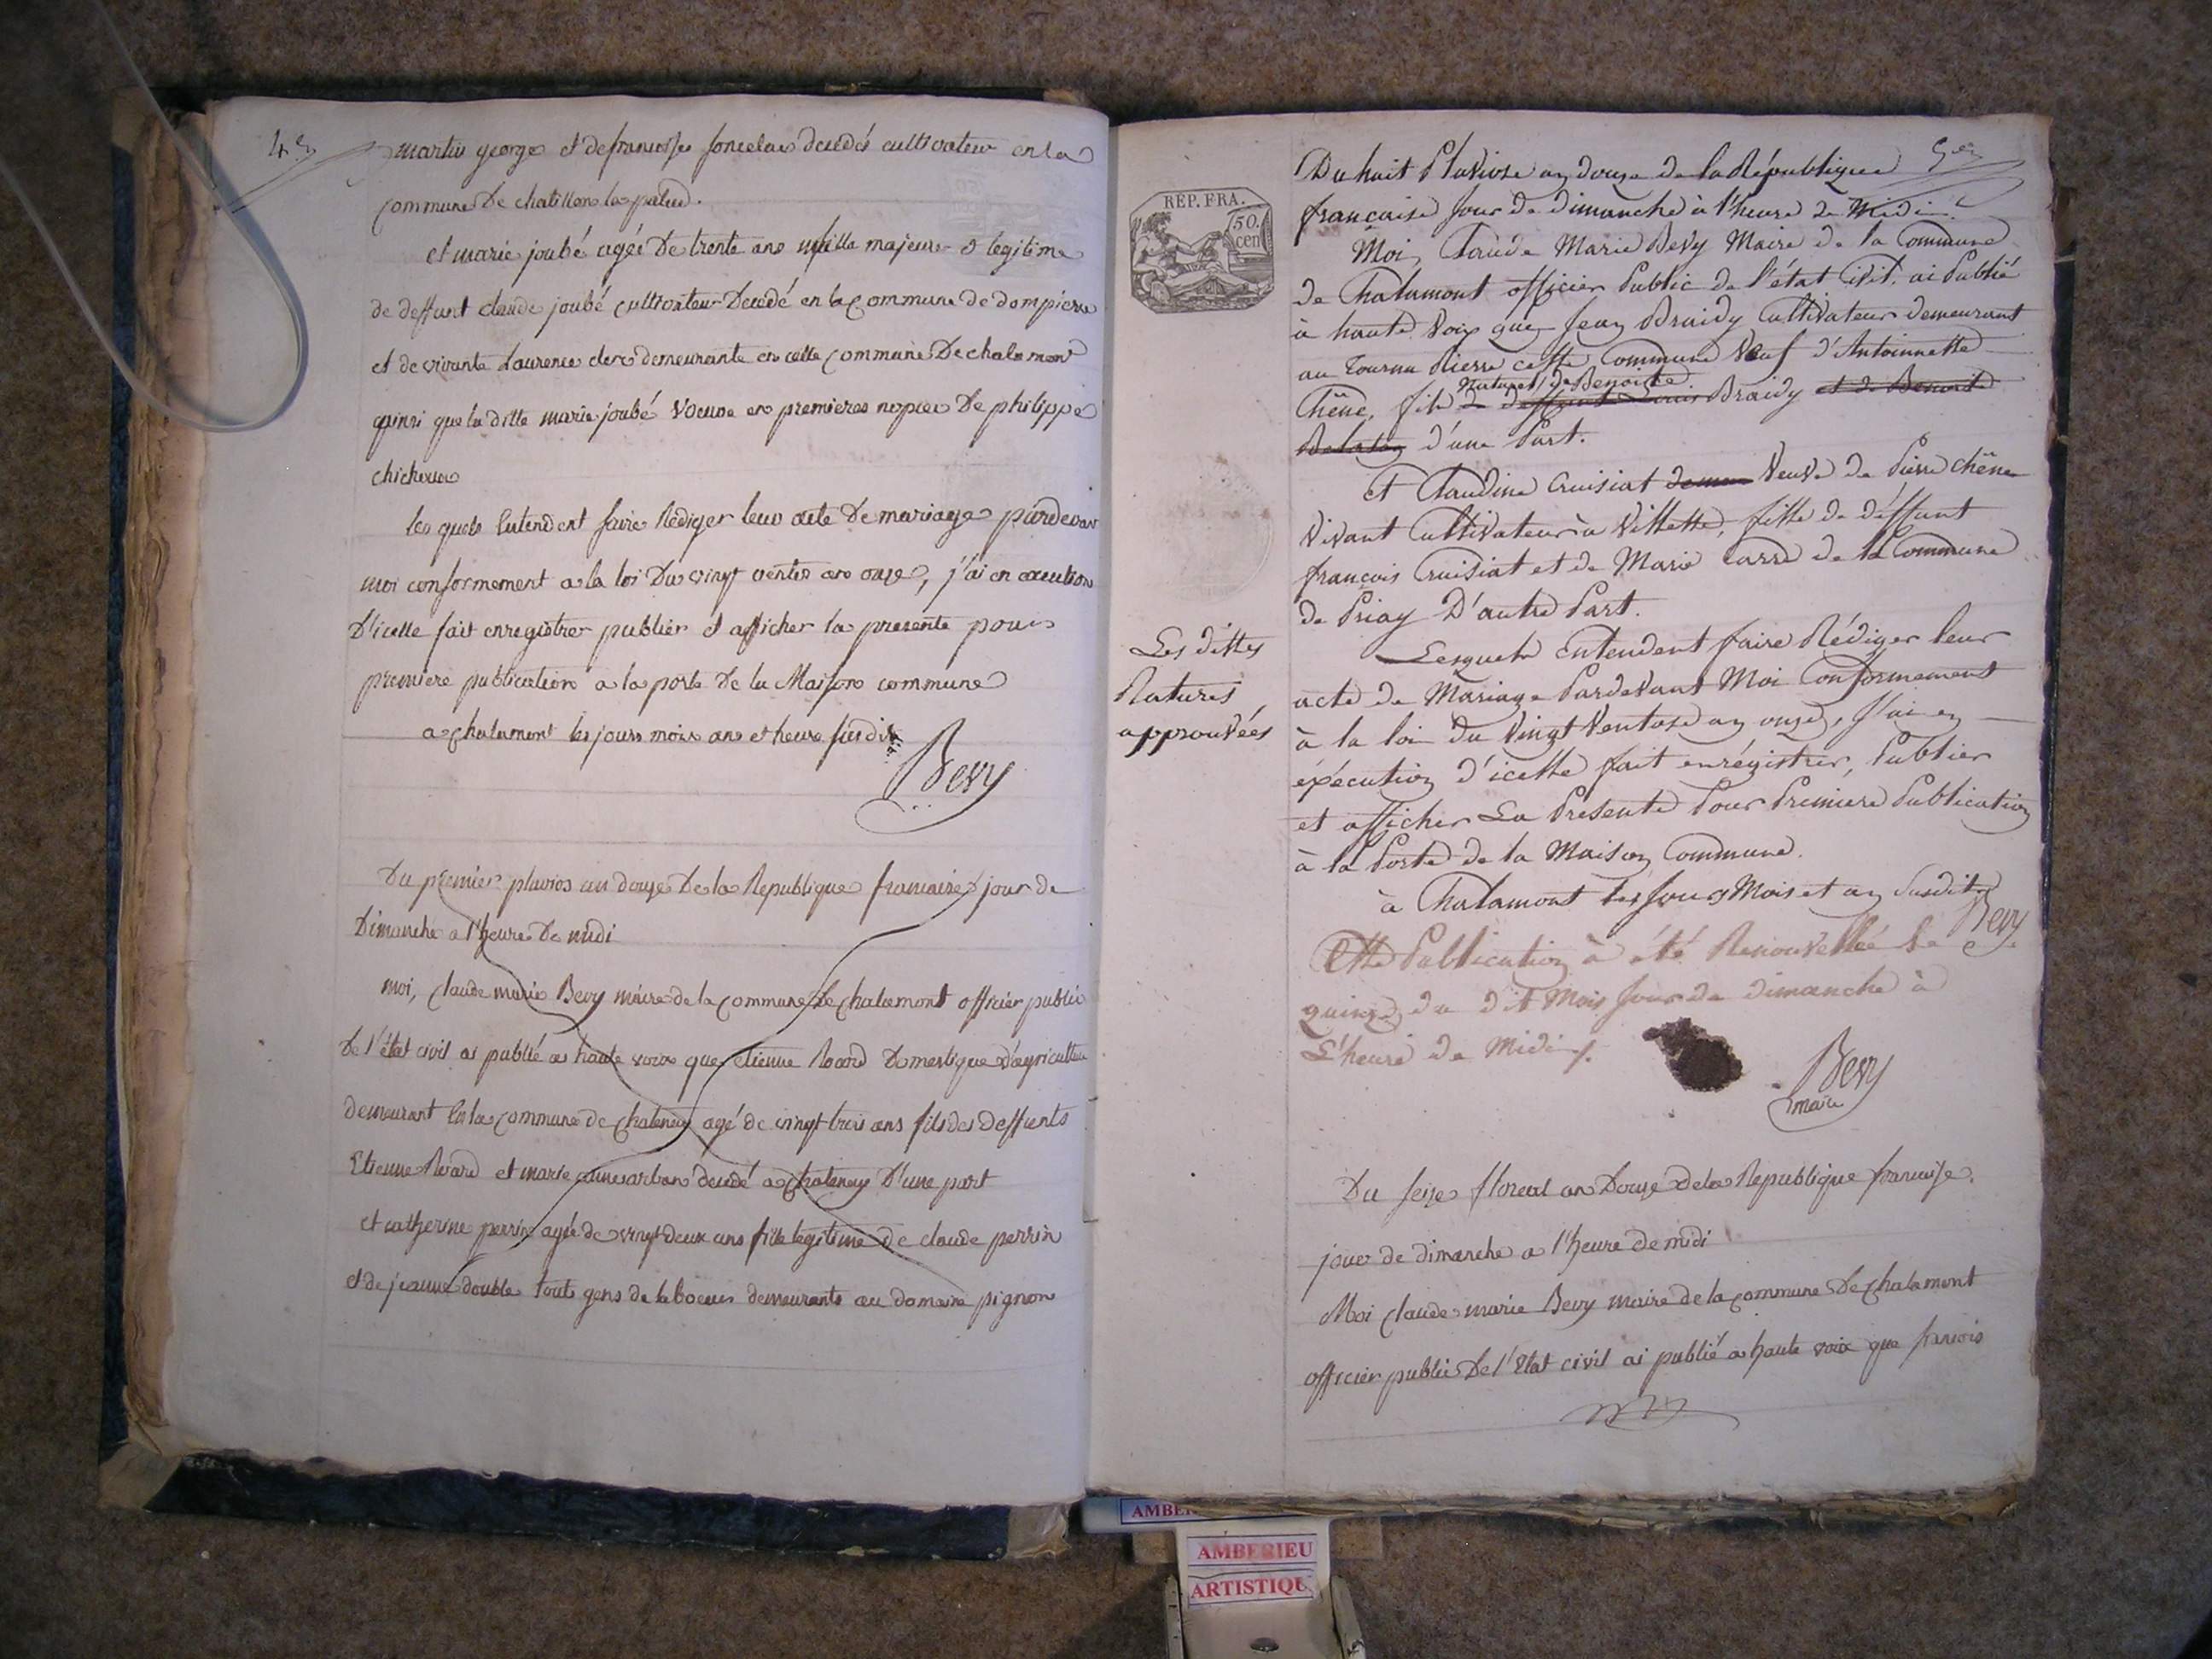 martin george et de francoise foncelas decedés cultivateur en la
commune De chatillon la palud.
et marie joubé agée De trente ans fille majeure et legitime
de deffunt claude joubé cultivateur Decedé en la commune de dompierre
et de vivante Laurence clerc demeurante en cette commune De chalamont
ainsi que la ditte marie joubé veuve en premieres nopces De philippe
les quels Entendent faire Rédiger leur acte De mariage pardevant
moi conformement a la loi Du vingt ventos an onze, j'ai en execution
D'icelle fait enregistrer publier et afficher la presente pour
premiere publication a la porte De la Maison commune
a chalamont les jours mois ans et heure susdits
Bevy
Du premier pluvios an douze De la Republique francaise jour de
Dimanche a l'heure De midi
moi, claude marie Bevy maire de la commune De chalamont officier public
De l'état civil ai publié a haute voix que etienne Roard Domestique d'agriculture
demeurant En la commune de chatenay agé de vingt trois ans fils des deffunts
Etienne Roard et marie decedé a chatenay D'une part
et catherine perrin agée de vingt deux ans fille legitime de claude perrin
et de jeanne double touts gens de labeurs demeurants au domaine pignon
REP. FRA.
50.
cen
5.e
Du huit Pluviose an douze de la République
française jour de dimanche à l'heure de Midi.
Moi, Claude Marie Bevy Maire de la Commune
de Chalamont officier Public de l'état Civil, ai Publié
à haute Voix que Jean Braidy Cultivateur demeurant
au Tournu Pierre cette Commune Veuf d'Antoinnette
Naturel de Benoite
Chêne, fils de deffunt Louis Braidy et de Benoite
d'une Part.
et Claudine Cruisiat Veuve de Pierre Chêne
Vivant Cultivateur à Villette, fille de déffunt
françois Cruisiat et de Marie Carre de la Commune
de Priay D'autre Part.
Lesquels Entendent faire Rédiger leur
acte de Mariage Pardevant Moi Conformement
à la loi du Vingt Ventose an onze, J'ai en
éxécution d'icelle fait enrégistrer, Publier
et afficher La Presente Pour Premiere Publication
à la Porte de la Maison Commune.
à Chalamont les Jours Mois et an Susdits
Bevy
Les dittes
Ratures,
approuvées
Cette Publication à été Renouvellée le
quinze du dit Mois Jour de dimanche à
L'heure de Midi /.
Bevy
maire
Du seize floreal an Douze de la Republique francaise.
jour de dimanche a l'heure de midi
Moi claude marie Bevy maire de la commune De chalamont
officier public De l'Etat civil ai publié a haute voix que francois
AMBERIEU
ARTISTIQU